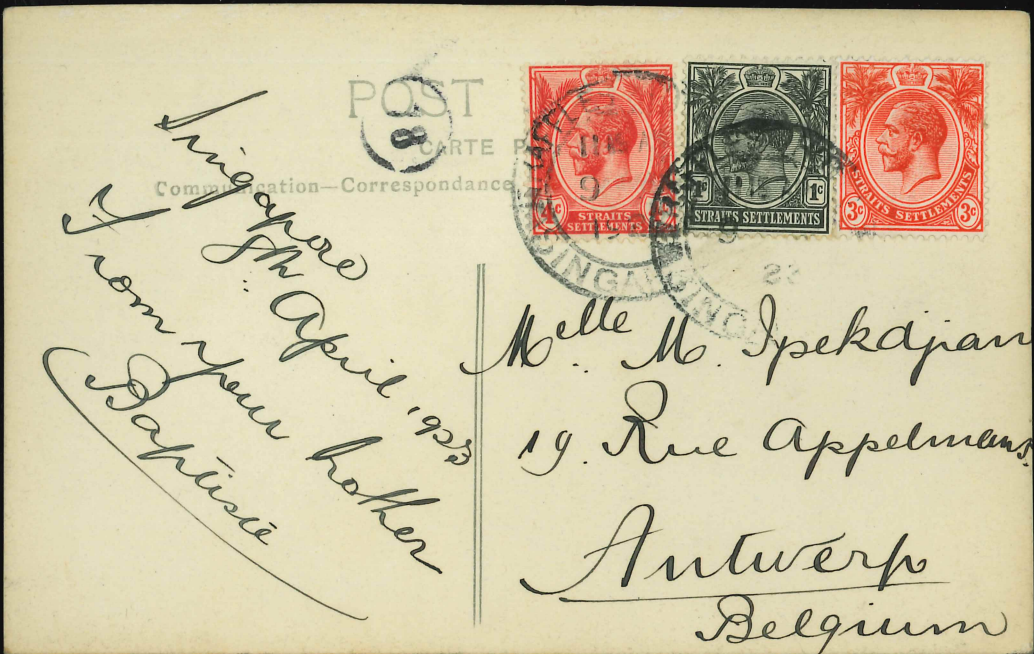 POST
CARTE
Communication—Correspondance
8
4c
STRAITS
SETTLEMENTS
1c
STRAITS SETTLEMENTS
3c
STRAITS SETTLEMENTS
3c
9
9
23
Singapore
8th April, 1923
From your brother
Baptiste
Melle M. Ipekdjian
19. Rue Appelmans.
Antwerp
Belgium